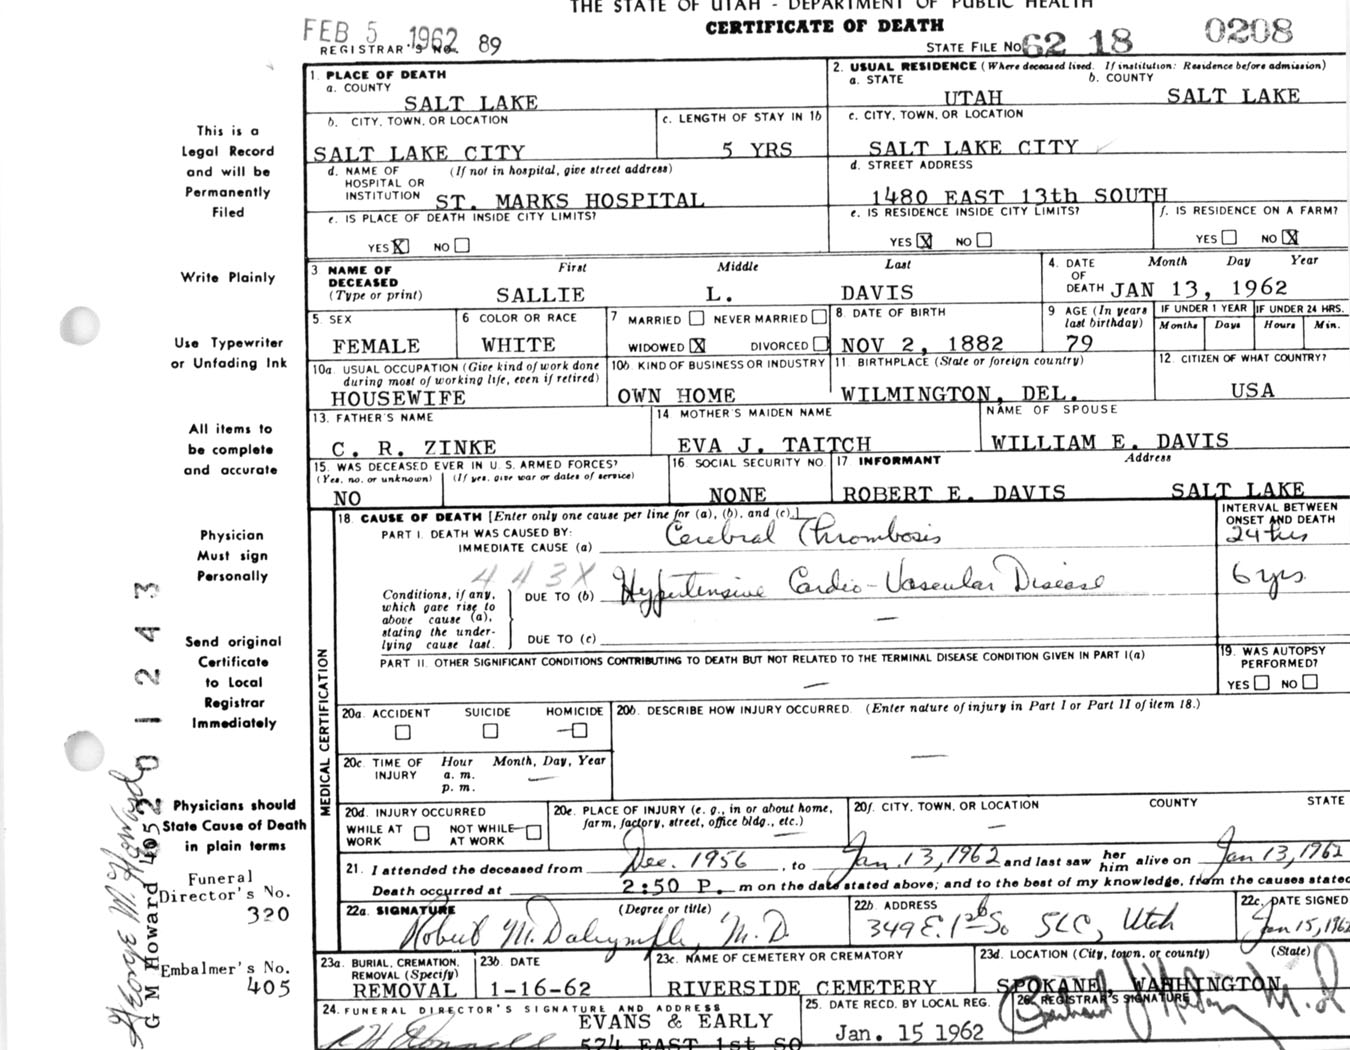 THE STATE OF UTAH - DEPARTMENT OF PUBLIC HEALTH
CERTIFICATE OF DEATH
FEB 5 1962
REGISTRAR'S No. 89
STATE FILE NO. 62 18 0208
1. PLACE OF DEATH
a. COUNTY
SALT LAKE
2. USUAL RESIDENCE (Where deceased lived. If institution: Residence before admission)
a. STATE b. COUNTY
UTAH SALT LAKE
b. CITY, TOWN, OR LOCATION c. LENGTH OF STAY IN 1b
SALT LAKE CITY 5 YRS
c. CITY, TOWN, OR LOCATION
SALT LAKE CITY
d. NAME OF HOSPITAL OR INSTITUTION (If not in hospital, give street address)
ST. MARKS HOSPITAL
d. STREET ADDRESS
1480 EAST 13th SOUTH
e. IS PLACE OF DEATH INSIDE CITY LIMITS?
YES X NO
e. IS RESIDENCE INSIDE CITY LIMITS?
YES X NO
f. IS RESIDENCE ON A FARM?
YES NO X
3 NAME OF DECEASED (Type or print) First Middle Last
SALLIE L. DAVIS
4. DATE OF DEATH Month Day Year
JAN 13, 1962
5. SEX
FEMALE
6 COLOR OR RACE
WHITE
7 MARRIED NEVER MARRIED
WIDOWED X DIVORCED
8 DATE OF BIRTH
NOV 2, 1882
9 AGE (In years last birthday)
79
IF UNDER 1 YEAR IF UNDER 24 HRS.
Months Days Hours Min.
10a. USUAL OCCUPATION (Give kind of work done during most of working life, even if retired)
HOUSEWIFE
10b. KIND OF BUSINESS OR INDUSTRY
OWN HOME
11. BIRTHPLACE (State or foreign country)
WILMINGTON, DEL.
12. CITIZEN OF WHAT COUNTRY?
USA
13. FATHER'S NAME
C. R. ZINKE
14 MOTHER'S MAIDEN NAME
EVA J. TAITCH
NAME OF SPOUSE
WILLIAM E. DAVIS
15. WAS DECEASED EVER IN U. S. ARMED FORCES?
(Yes, no, or unknown) (If yes, give war or dates of service)
NO
16. SOCIAL SECURITY NO.
NONE
17 INFORMANT Address
ROBERT E. DAVIS SALT LAKE
18. CAUSE OF DEATH [Enter only one cause per line for (a), (b), and (c).]
INTERVAL BETWEEN ONSET AND DEATH
PART I. DEATH WAS CAUSED BY:
IMMEDIATE CAUSE (a) Cerebral Thrombosis 24 hrs
443X
Conditions, if any, which gave rise to above cause (a), stating the underlying cause last.
DUE TO (b) Hypertensive Cardio-Vascular Disease 6 yrs
DUE TO (c) —
PART II. OTHER SIGNIFICANT CONDITIONS CONTRIBUTING TO DEATH BUT NOT RELATED TO THE TERMINAL DISEASE CONDITION GIVEN IN PART I(a)
—
19. WAS AUTOPSY PERFORMED?
YES NO
MEDICAL CERTIFICATION
20a. ACCIDENT SUICIDE HOMICIDE
20b. DESCRIBE HOW INJURY OCCURRED. (Enter nature of injury in Part I or Part II of item 18.)
—
20c. TIME OF INJURY Hour Month, Day, Year
a. m.
p. m.
20d. INJURY OCCURRED
WHILE AT WORK NOT WHILE AT WORK
20e. PLACE OF INJURY (e. g., in or about home, farm, factory, street, office bldg., etc.)
20f. CITY, TOWN, OR LOCATION COUNTY STATE
21. I attended the deceased from Dec. 1956, to Jan. 13, 1962 and last saw her him alive on Jan 13, 1962
Death occurred at 2:50 P. m on the date stated above; and to the best of my knowledge, from the causes stated
22a. SIGNATURE (Degree or title)
Robert M. Dalrymple, M.D.
22b. ADDRESS
349 E. 1st So SLC, Utah
22c. DATE SIGNED
Jan 15, 1962
23a. BURIAL, CREMATION, REMOVAL (Specify)
REMOVAL
23b. DATE
1-16-62
23c. NAME OF CEMETERY OR CREMATORY
RIVERSIDE CEMETERY
23d. LOCATION (City, town, or county) (State)
SPOKANE, WAHHINGTON
24. FUNERAL DIRECTOR'S SIGNATURE AND ADDRESS
EVANS & EARLY
574 EAST 1st SO
25. DATE RECD. BY LOCAL REG.
Jan. 15 1962
26. REGISTRAR'S SIGNATURE
This is a
Legal Record
and will be
Permanently
Filed
Write Plainly
Use Typewriter
or Unfading Ink
All items to
be complete
and accurate
Physician
Must sign
Personally
Send original
Certificate
to Local
Registrar
Immediately
Physicians should
State Cause of Death
in plain terms
Funeral
Director's No.
320
Embalmer's No.
405
George M. Howard
G M Howard 405
2 0 1 2 4 3